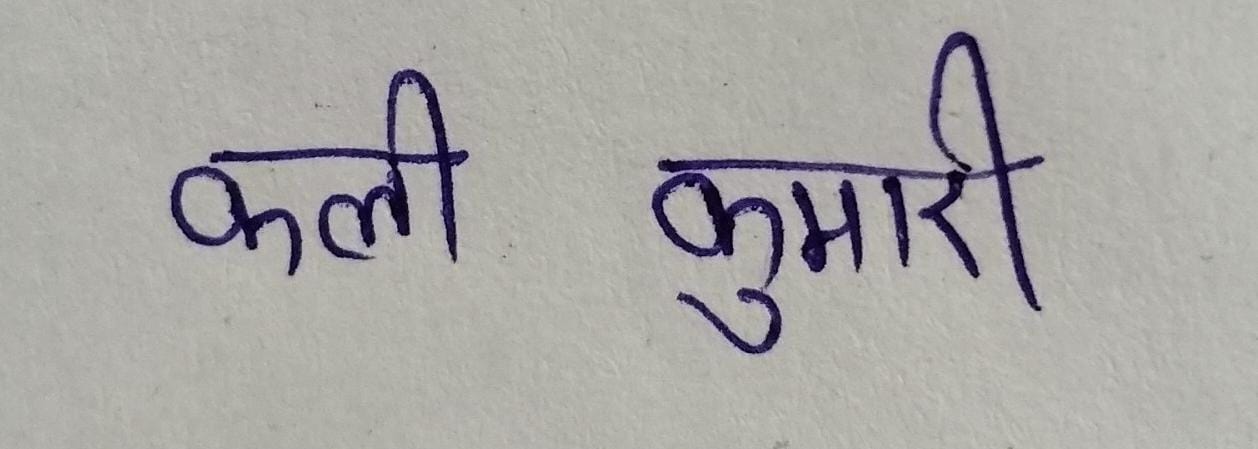 कली कुमारी